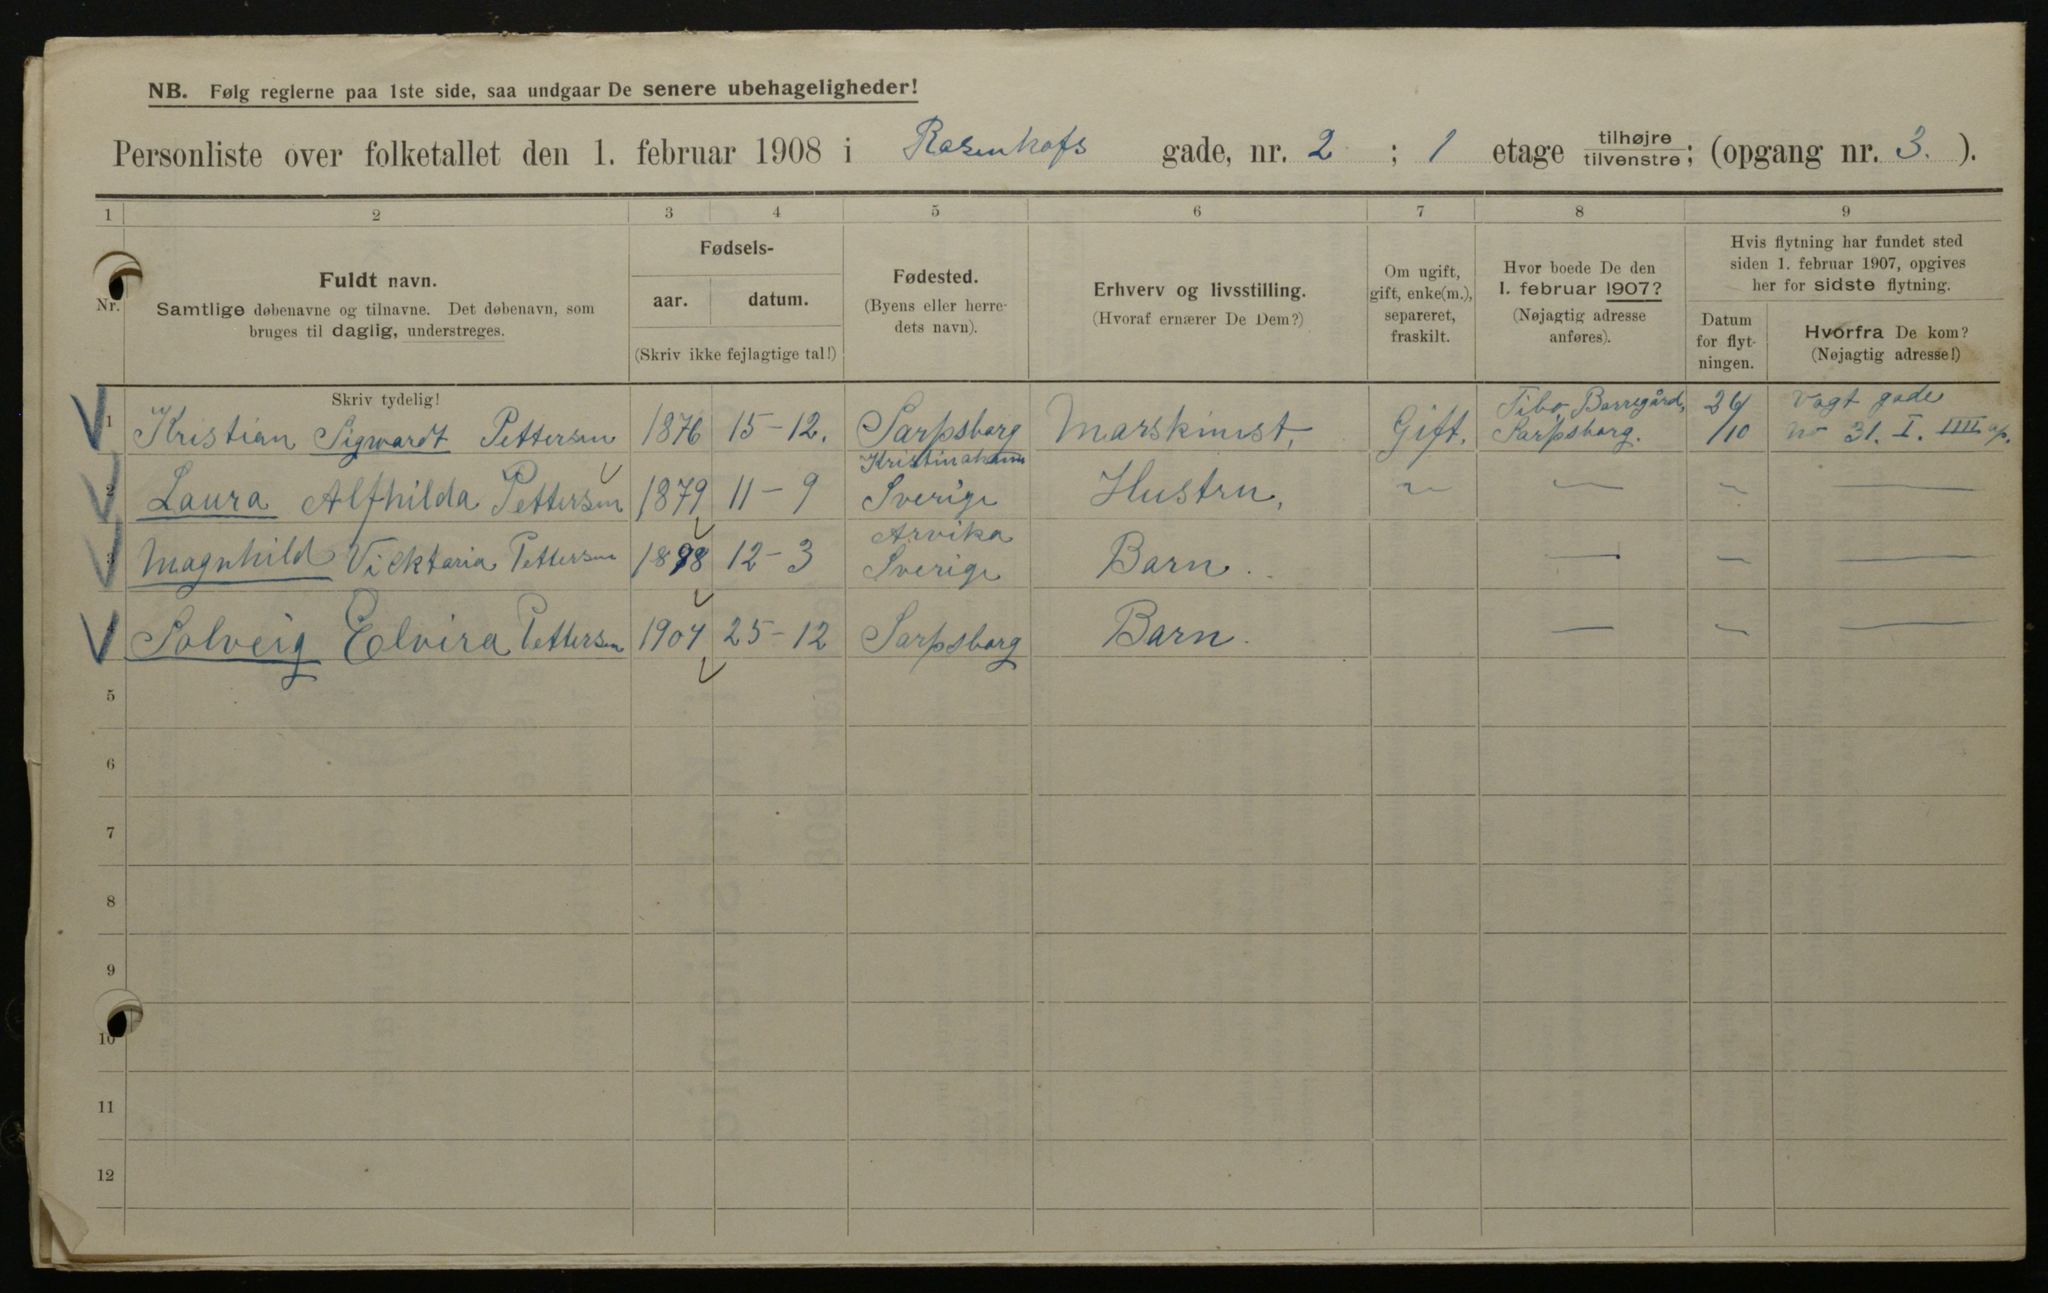 NB. Følg reglerne paa 1ste side, saa undgaar De senere ubehageligheder!
Personliste over folketallet den 1. februar 1908 i Rosenhofs gade, nr. 2 ; 1 etage tilhøjre tilvenstre; (opgang nr. 3. ).
1 2 3 4 5 6 7 8 9
Nr.
Fuldt navn.
Samtlige døbenavne og tilnavne. Det døbenavn, som
bruges til daglig, understreges.
Fødsels-
aar. datum.
(Skriv ikke fejlagtige tal!)
Fødested.
(Byens eller herre-
dets navn).
Erhverv og livsstilling.
(Hvoraf ernærer De Dem?)
Om ugift,
gift, enke(m.),
separeret,
fraskilt.
Hvor boede De den
1. februar 1907?
(Nøjagtig adresse
anføres).
Hvis flytning har fundet sted
siden 1. februar 1907, opgives
her for sidste flytning.
Datum
for flyt-
ningen.
Hvorfra De kom?
(Nøjagtig adresse!)
Skriv tydelig!
1 Kristian Sigwardt Pettersen 1876 15-12. Sarpsborg Marskinist, Gift. Borregård, Sarpsborg. 26/10 Vogt gade no 31. I. IIII op.
2 Laura Alfhilda Pettersen 1879 11-9 Kristinahamn Sverige Hustru, ~ — ~ —
3 Magnhild Vicktoria Pettersen 1898 12-3 Arvika Sverige Barn. — ~ —
Solveig Elvira Pettersen 1904 25-12 Sarpsborg Barn. — ~ —
5
6
7
8
9
10
11
12